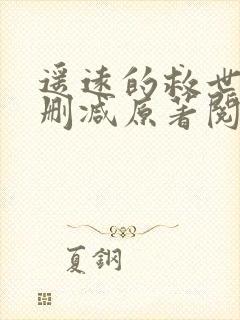 遥远的救世
删减原著阅
夏鋼